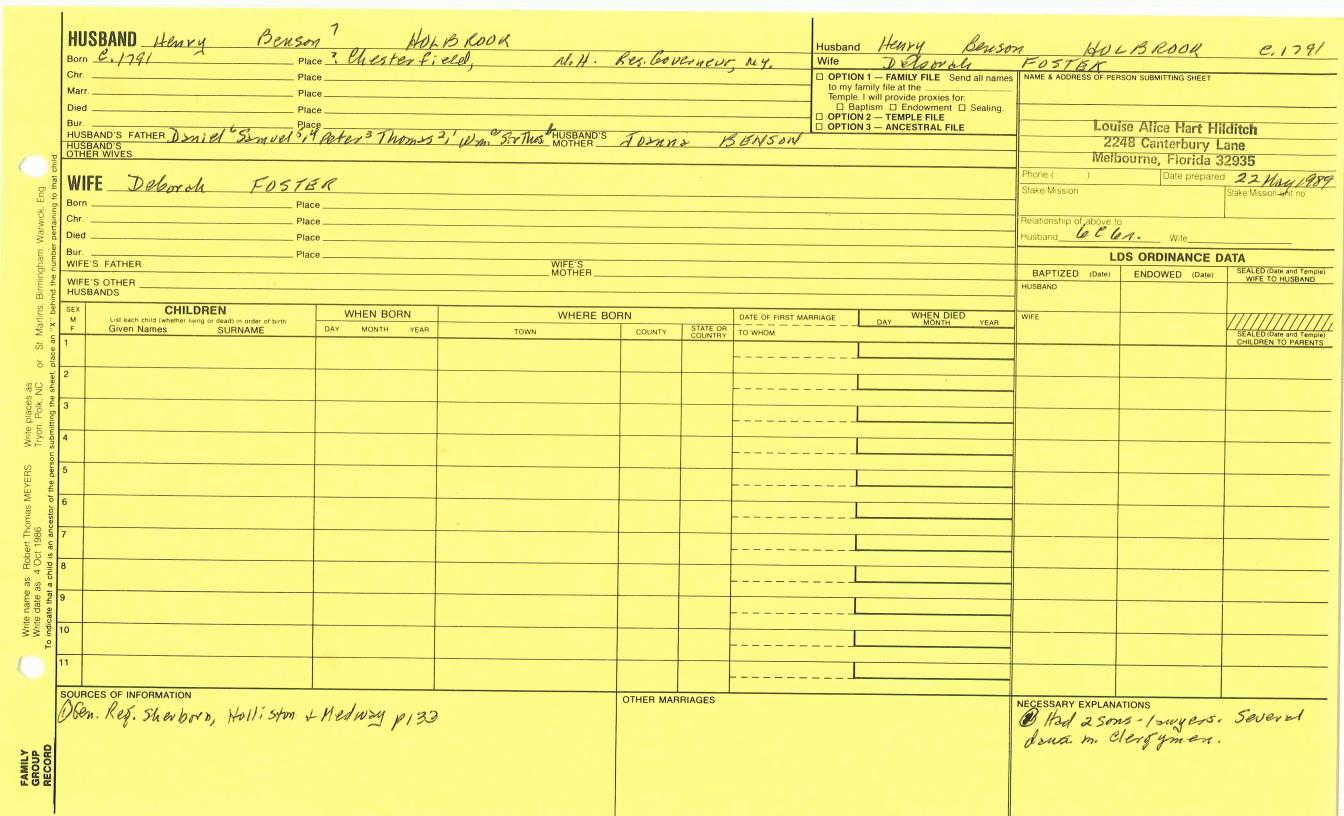 HUSBAND Henry Benson 7 HOLBROOK
Born C. 1791 Place ? Chesterfield, N.H. Res. Governeur, N.Y.
Chr. Place
Marr. Place
Died Place
Bur. Place
HUSBAND'S FATHER Daniel 6 Samuel 5,4 Peter 3 Thomas 2,1 Wm. a Sir Thos b HUSBAND'S MOTHER Joanna BENSON
HUSBAND'S OTHER WIVES
WIFE Deborah FOSTER
Born Place
Chr. Place
Died Place
Bur. Place
WIFE'S FATHER WIFE'S MOTHER
WIFE'S OTHER HUSBANDS
Husband Henry Benson HOLBROOK C. 1791
Wife Deborah FOSTER
OPTION 1 — FAMILY FILE Send all names
to my family file at the
Temple. I will provide proxies for:
Baptism Endowment Sealing.
OPTION 2 — TEMPLE FILE
OPTION 3 — ANCESTRAL FILE
NAME & ADDRESS OF PERSON SUBMITTING SHEET
Louise Alice Hart Hilditch
2248 Canterbury Lane
Melbourne, Florida 32935
Phone ( ) Date prepared 22 May 1989
Stake/Mission Stake/Mission unit no
Relationship of above to
Husband 6C 6r. Wife
LDS ORDINANCE DATA
BAPTIZED (Date) ENDOWED (Date) SEALED (Date and Temple) WIFE TO HUSBAND
HUSBAND
WIFE
SEALED (Date and Temple)
CHILDREN TO PARENTS
SEX M F
CHILDREN
List each child (whether living or dead) in order of birth
Given Names SURNAME
WHEN BORN
DAY MONTH YEAR
WHERE BORN
TOWN COUNTY STATE OR COUNTRY
DATE OF FIRST MARRIAGE
TO WHOM
WHEN DIED
DAY MONTH YEAR
1
2
3
4
5
6
7
8
9
10
11
SOURCES OF INFORMATION
① Gen. Reg. Sherborn, Holliston & Medway p133
OTHER MARRIAGES
NECESSARY EXPLANATIONS
Had 2 sons - lawyers. Several
daus. m. Clergymen.
Write name as Robert Thomas MEYERS Write places as
Write date as 4 Oct 1986 Tryon, Polk, NC or St. Martins, Birmingham, Warwick, Eng
To indicate that a child is an ancestor of the person submitting the sheet, place an "X" behind the number pertaining to that child
FAMILY
GROUP
RECORD